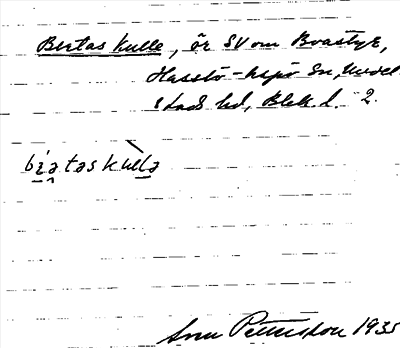 Bertas kulle, ör SV om Brastyk,
Hasslö - Aspö Sn, Medel-
stads hd, Blek. l. 2.
bíətəs kùllə
Pettersson 1935